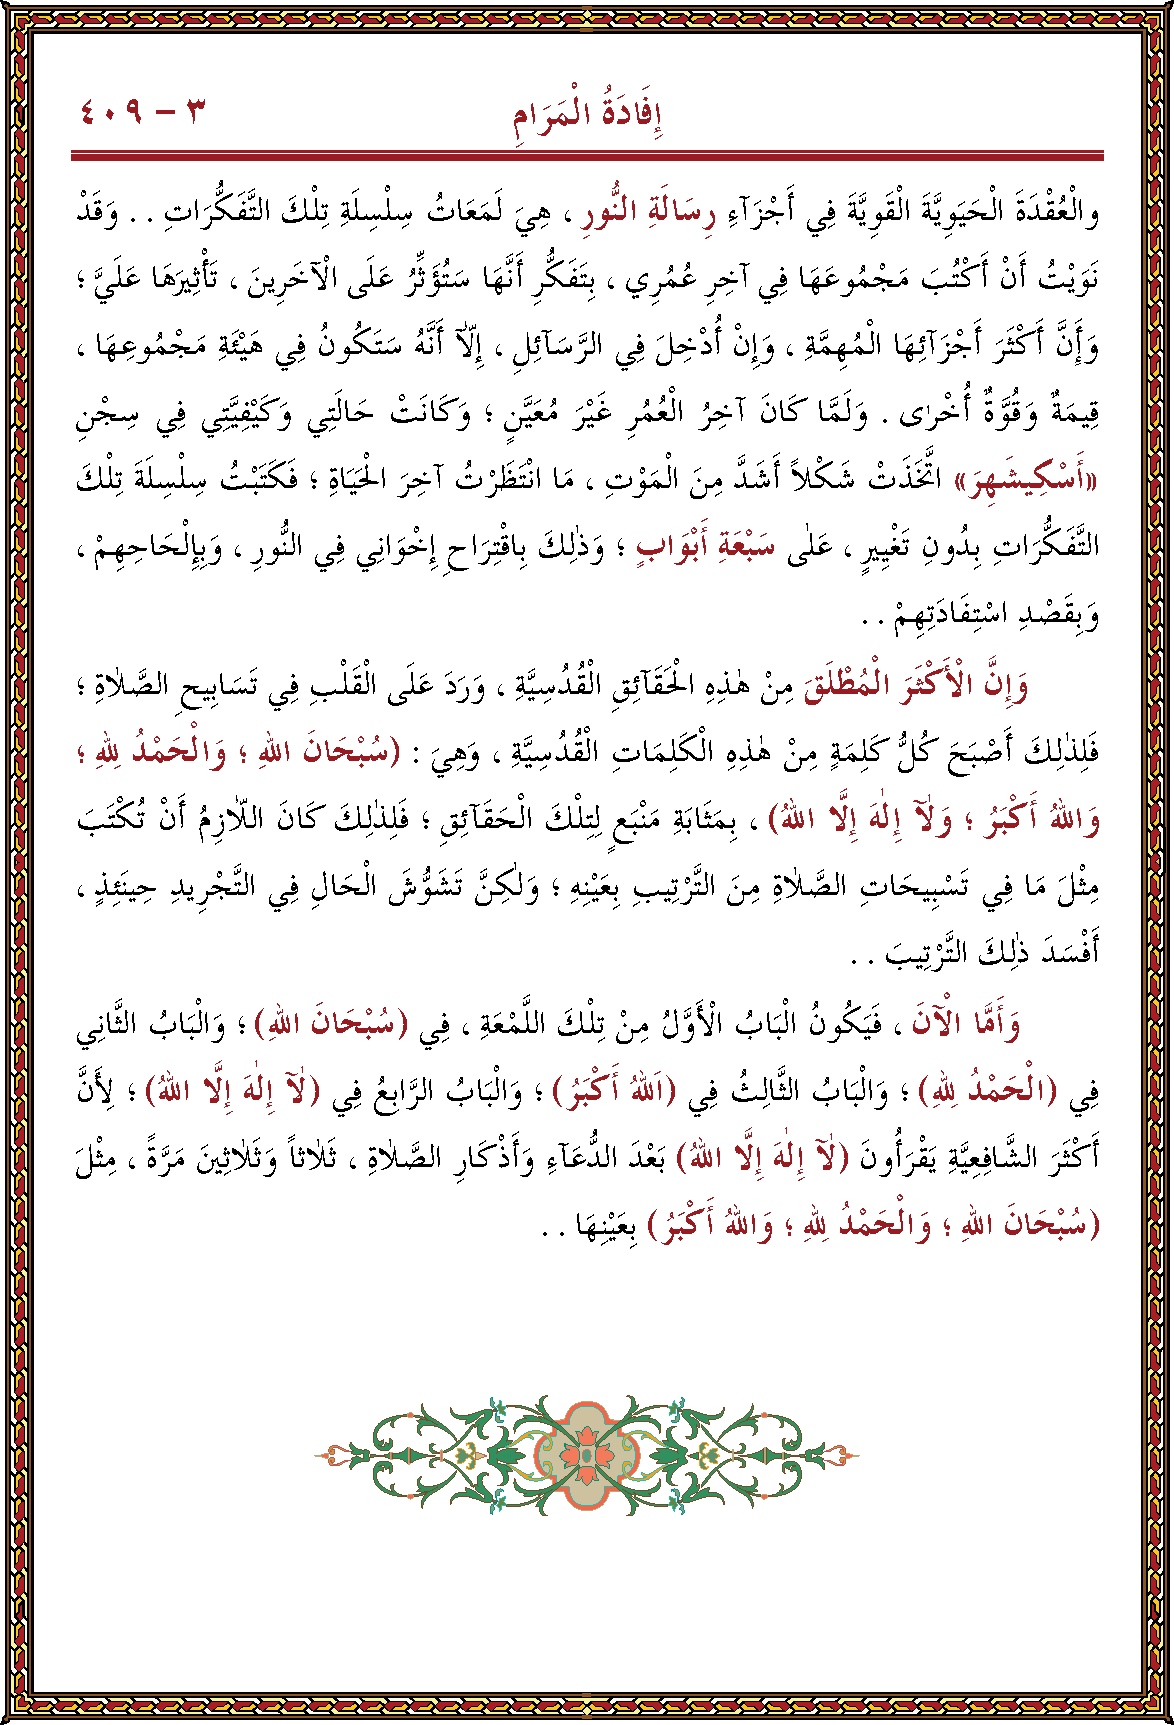 إِفَادَةُ الْمَرَامِ ٣ – ٤٠٩
والْعُقْدَةَ الْحَيَوِيَّةَ الْقَوِيَّةَ فِي أَجْزَآءِ رِسَالَةِ النُّورِ ، هِيَ لَمَعَاتُ سِلْسِلَةِ تِلْكَ التَّفَكُّرَاتِ . . وَقَدْ
نَوَيْتُ أَنْ أَكْتُبَ مَجْمُوعَهَا فِي آخِرِ عُمُرِي ، بِتَفَكُّرِ أَنَّهَا سَتُؤَثِّرُ عَلَى الْآخَرِينَ ، تَأْثِيرَهَا عَلَيَّ ؛
وَأَنَّ أَكْثَرَ أَجْزَآئِهَا الْمُهِمَّةِ ، وَإِنْ أُدْخِلَ فِي الرَّسَآئِلِ ، إِلَّا أَنَّهُ سَتَكُونُ فِي هَيْئَةِ مَجْمُوعِهَا ،
قِيمَةٌ وَقُوَّةٌ أُخْرٰى . وَلَمَّا كَانَ آخِرُ الْعُمُرِ غَيْرَ مُعَيَّنٍ ؛ وَكَانَتْ حَالَتِي وَكَيْفِيَّتِي فِي سِجْنِ
«أَسْكِيشَهِرَ» اتَّخَذَتْ شَكْلاً أَشَدَّ مِنَ الْمَوْتِ ، مَا انْتَظَرْتُ آخِرَ الْحَيَاةِ ؛ فَكَتَبْتُ سِلْسِلَةَ تِلْكَ
التَّفَكُّرَاتِ بِدُونِ تَغْيِيرٍ ، عَلٰى سَبْعَةِ أَبْوَابٍ ؛ وَذٰلِكَ بِاقْتِرَاحِ إِخْوَانِي فِي النُّورِ ، وَبِإِلْحَاحِهِمْ ،
وَبِقَصْدِ اسْتِفَادَتِهِمْ . .
وَإِنَّ الْأَكْثَرَ الْمُطْلَقَ مِنْ هٰذِهِ الْحَقَآئِقِ الْقُدْسِيَّةِ ، وَرَدَ عَلَى الْقَلْبِ فِي تَسَابِيحِ الصَّلَاةِ ؛
فَلِذٰلِكَ أَصْبَحَ كُلُّ كَلِمَةٍ مِنْ هٰذِهِ الْكَلِمَاتِ الْقُدْسِيَّةِ ، وَهِيَ : (سُبْحَانَ اللهِ ؛ وَالْحَمْدُ لِلّٰهِ ؛
وَاللهُ أَكْبَرُ ؛ وَلَآ إِلٰهَ إِلَّا اللهُ) ، بِمَثَابَةِ مَنْبَعٍ لِتِلْكَ الْحَقَآئِقِ ؛ فَلِذٰلِكَ كَانَ اللَّازِمُ أَنْ تُكْتَبَ
مِثْلَ مَا فِي تَسْبِيحَاتِ الصَّلَاةِ مِنَ التَّرْتِيبِ بِعَيْنِهِ ؛ وَلٰكِنَّ تَشَوُّشَ الْحَالِ فِي التَّجْرِيدِ حِينَئِذٍ ،
أَفْسَدَ ذٰلِكَ التَّرْتِيبَ . .
وَأَمَّا الْآنَ ، فَيَكُونُ الْبَابُ الْأَوَّلُ مِنْ تِلْكَ اللَّمْعَةِ ، فِي (سُبْحَانَ اللهِ) ؛ وَالْبَابُ الثَّانِي
فِي (الْحَمْدُ لِلّٰهِ) ؛ وَالْبَابُ الثَّالِثُ فِي (اَللهُ أَكْبَرُ) ؛ وَالْبَابُ الرَّابِعُ فِي (لَآ إِلٰهَ إِلَّا اللهُ) ؛ لِأَنَّ
أَكْثَرَ الشَّافِعِيَّةِ يَقْرَأُونَ (لَآ إِلٰهَ إِلَّا اللهُ) بَعْدَ الدُّعَآءِ وَأَذْكَارِ الصَّلَاةِ ، ثَلَاثاً وَثَلَاثِينَ مَرَّةً ، مِثْلَ
(سُبْحَانَ اللهِ ؛ وَالْحَمْدُ لِلّٰهِ ؛ وَاللهُ أَكْبَرُ) بِعَيْنِهَا . .